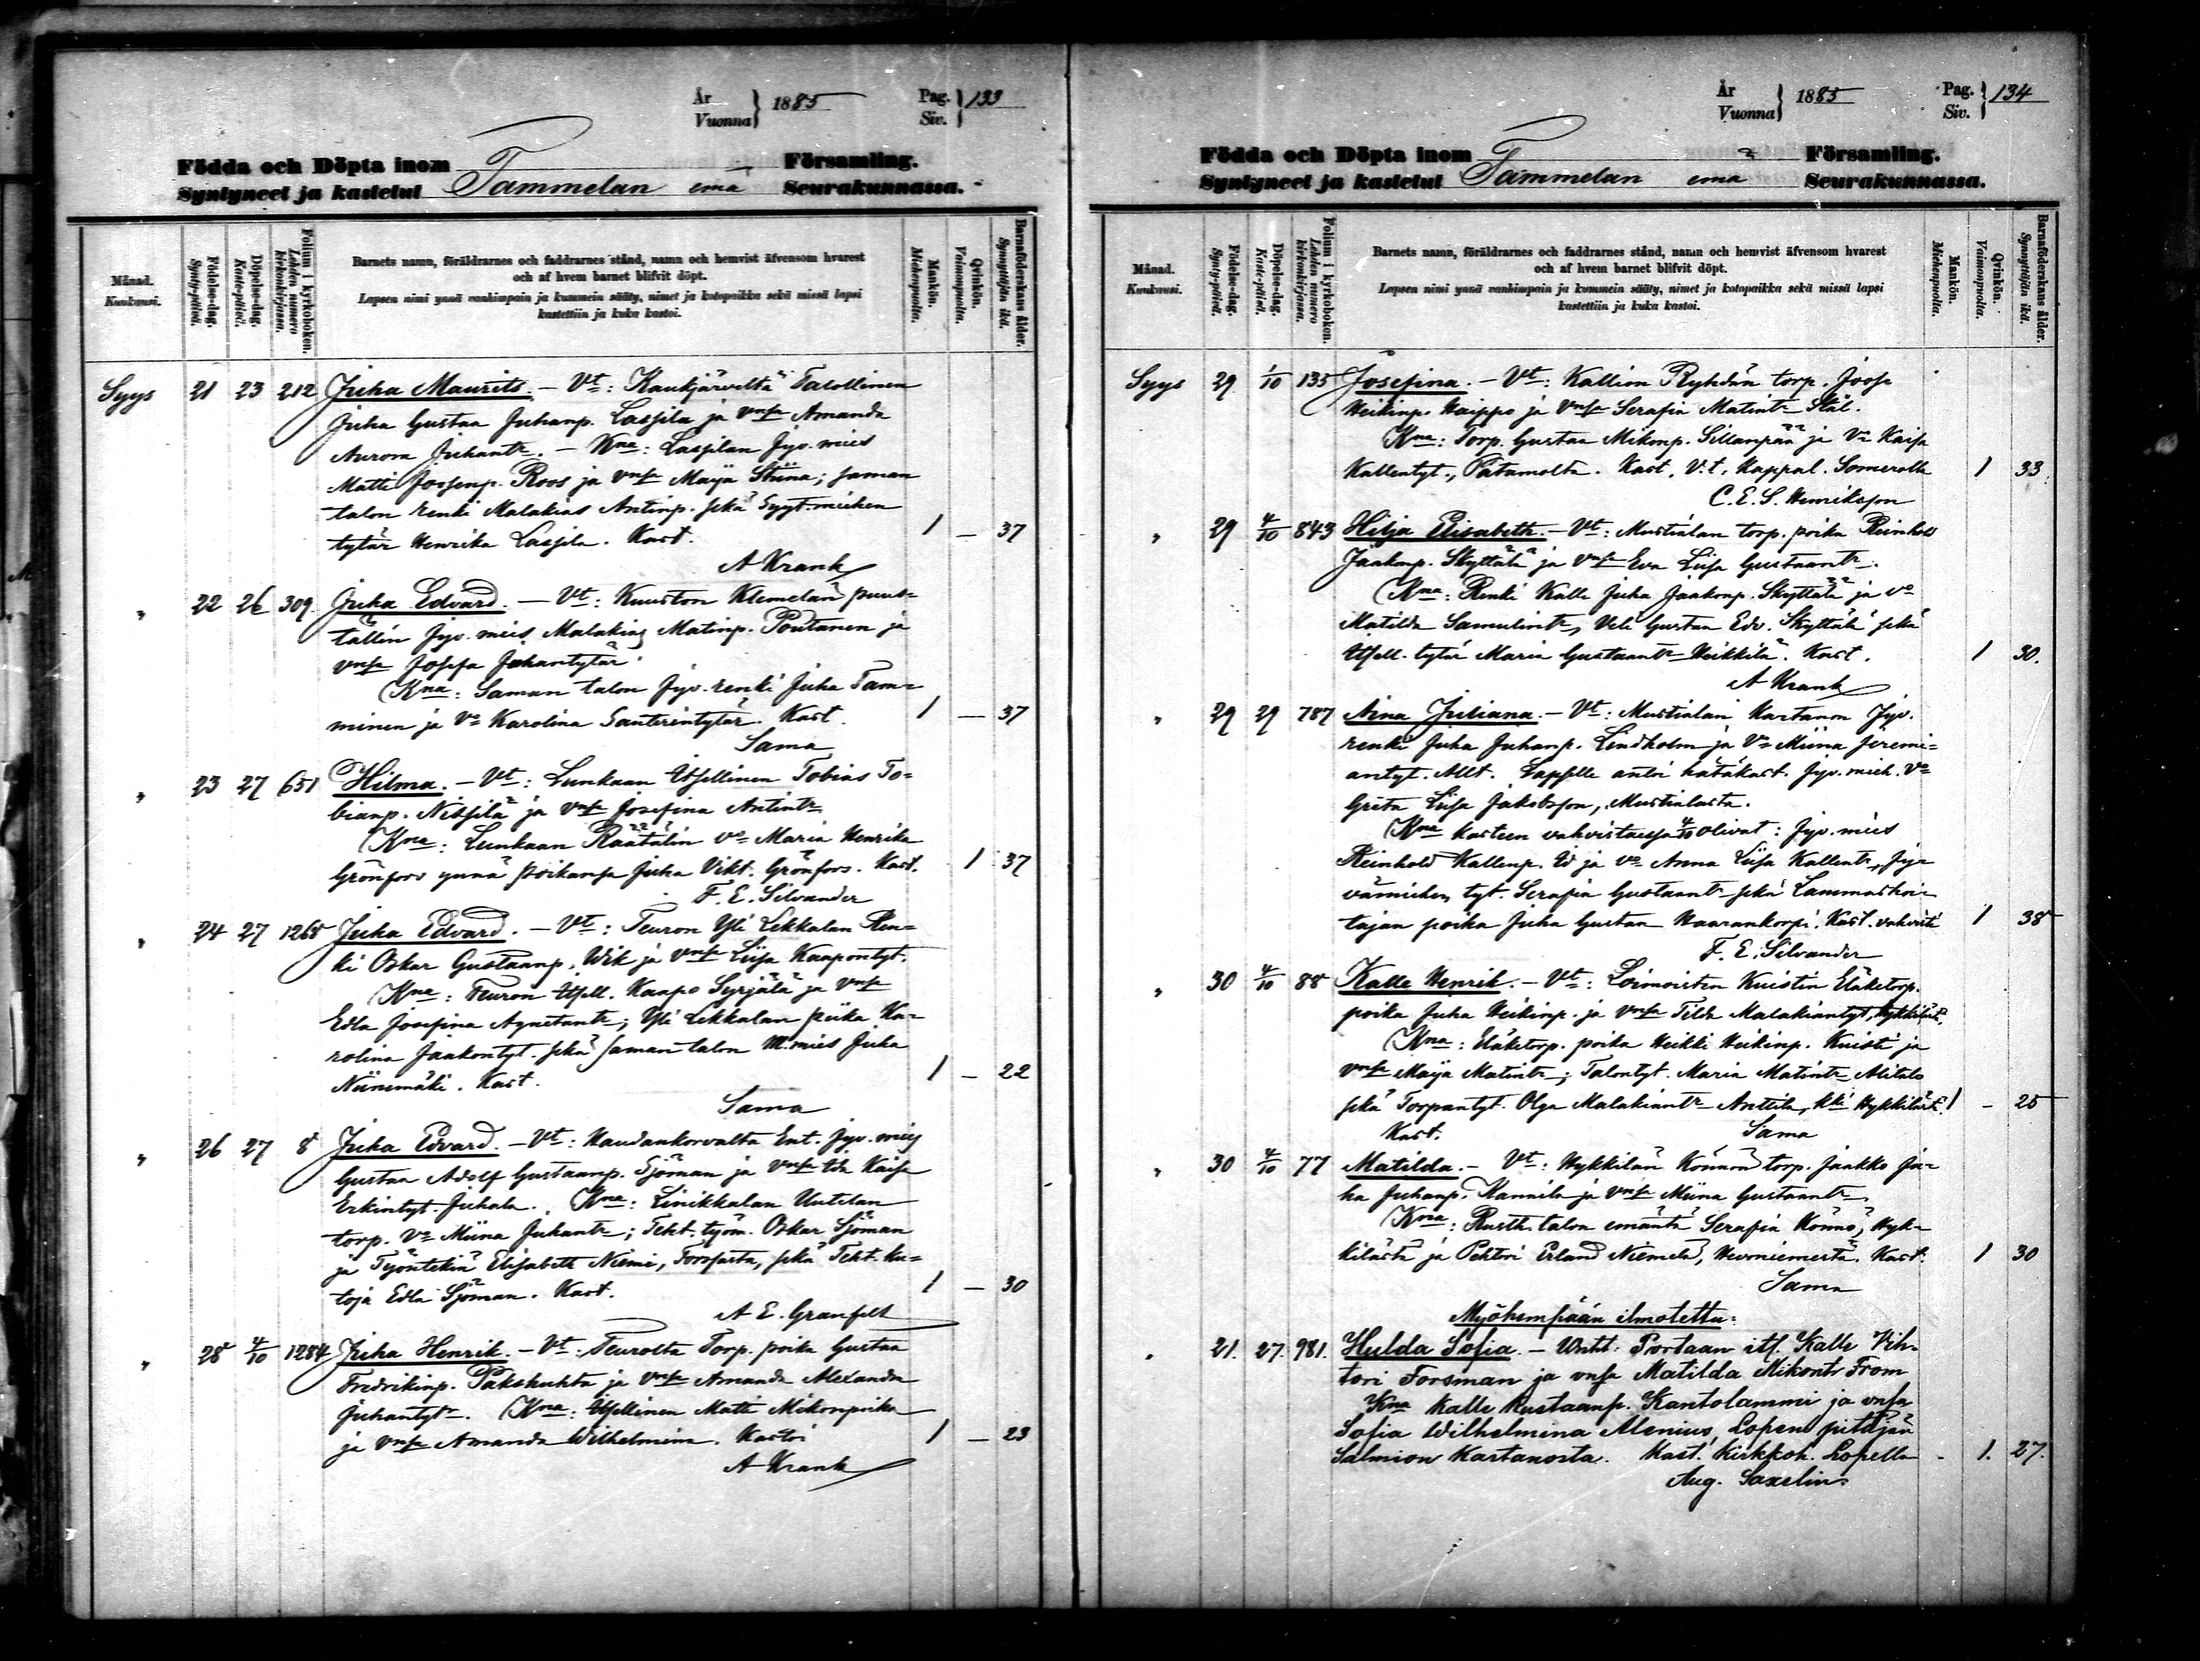 År
Vuonna } 1885 Pag.
Siv. } 133
Födda och Döpta inom Församling.
Syntyneet ja kastetut Tammelan emä Seurakunnassa.
Månad.
Kuukausi.
Födelse-dag.
Synty-päivä.
Döpelse-dag.
Kaste-päivä.
Folium i kyrkoboken.
Lehden numero kirkonkirjassa.
Barnets namn, föräldrarnes och faddrarnes stånd, namn och hemvist äfvensom hvarest
och af hvem barnet blifvit döpt.
Lapsen nimi ynnä vanhimpain ja kummein sääty, nimet ja kotopaikka sekä missä lapsi
kastettiin ja kuka kastoi.
Mankön.
Miehenpuolta.
Qvinkön.
Vaimonpuolta.
Barnaföderskans ålder.
Synnyttäjän ikä.
Syys 21 23 212 Juha Maurits. – Vt: Kaukjärveltä Talollinen
Juha Gustaa Juhanp. Lassila ja vmsa Amanda
Aurora Juhantr. – Kna: Lassilan Jyv. mies
Matti Joosenp. Roos ja vmsa Maija Stiina; saman
talon renki Malakias Antinp. sekä Syyt.miehen
tytär Henrika Lassila. Kast. 1 – 37
A Krank
" 22 26 309 Juha Edvard. – Vt: Kuuston Klemelän puus-
tällin Jyv. mies Malakias Matinp. Poutanen ja
vmsa Josefa Juhantytär.
Kna: Saman talon Jyv. renki Juha Tam-
minen ja Vo Karolina Santerintytär. Kast. 1 – 37
Sama
" 23 27 651 Hilma. – Vt: Lunkaan Itsellinen Tobias To-
bianp. Nissilä ja vmsa Josefina Antintr
Kna: Lunkaan Räätälin vo Maria Henrika
Grönfors ynnä poikansa Juha Vikt. Grönfors. Kast. 1 37
F. E. Silvander
" 24 27 1268 Juha Edvard. – Vt: Teuron Yli Lekkalan Ren-
ki Oskar Gustaanp. Wik ja vmsa Liisa Kaapontyt.
Kna: Teuron Itsell. Kaapo Syrjälä ja vmsa
Edla Josefina Agnetantr; Yli Lekkalan piika Ka-
rolina Jaakontyt. sekä saman talon M.mies Juha
Niinimäki. Kast. 1 – 22
Sama
" 26 27 8 Juha Edvard. – Vt: Haudankorvalta Ent. Jyv. mies
Gustaa Adolf Gustaanp. Sjöman ja vmsa Kaisa
Erkintyt. Juhala. Kna: Linikkalan Uutelan
torp. Vo Miina Juhantr; Teht. työm. Oskar Sjöman
ja Työntekiä Elisabeth Niemi, Forssasta, sekä Teht. ku-
toja Edla Sjöman. Kast. 1 – 30
A E. Granfelt
" 28 4/10 1284 Juha Henrik. – Vt: Teurolta Torp. poika Gustaa
Fredrikinp. Pakshuhta ja vmsa Amanda Alexandra
Juhantytr. Kna: Itsellinen Matti Mikonpoika
ja vmsa Amanda Wilhelmina. Kastoi 1 – 23
A Krank
År
Vuonna } 1885 Pag.
Siv. } 134
Födda och Döpta inom Församling.
Syntyneet ja kastetut Tammelan emä Seurakunnassa.
Månad.
Kuukausi.
Födelse-dag.
Synty-päivä.
Döpelse-dag.
Kaste-päivä.
Folium i kyrkoboken.
Lehden numero kirkonkirjassa.
Barnets namn, föräldrarnes och faddrarnes stånd, namn och hemvist äfvensom hvarest
och af hvem barnet blifvit döpt.
Lapsen nimi ynnä vanhimpain ja kummein sääty, nimet ja kotopaikka sekä missä lapsi
kastettiin ja kuka kastoi.
Mankön.
Miehenpuolta.
Qvinkön.
Vaimonpuolta.
Barnaföderskans ålder.
Synnyttäjän ikä.
Syys 29 1/10 135 Josefina. – Vt: Kallion Ryhdän torp. Joose
Heikinp. Haippo ja vmsa Serafia Matintr Stål.
Kna: Torp. Gustaa Mikonp. Sillanpää ja Vo Kaisa
Kallentyt., Patamolta. Kast. V.t. Kappal. Somerolla 1 33
C. E. S. Henriksson
" 29 4/10 843 Hilja Elisabeth. – Vt: Mustialan torp. poika Reinhold
Jaakonp. Skyttälä ja vmsa Eva Liisa Gustaantr.
Kna: Renki Kalle Juha Jaakonp. Skyttälä ja vo
Matilda Samulintr, Veli Gustaa Edv. Skyttälä sekä
Itsell. tytär Maria Gustaantr Heikkilä. Kast. 1 30.
A Krank
" 29 29 787 Aina Juliana. – Vt: Mustialan Kartanon Jyv.
renki Juha Juhanp. Lindholm ja Vo Miina Jeremi-
antyt. Allt. Lapselle antoi hätäkast. Jyv. mieh. Vo
Greta Liisa Jakobsson, Mustialasta.
Kna kasteen vahvistaessa 4/10 olivat: Jyv. mies
Reinhold Kallenp. Id ja vo Anna Liisa Kallentr, Jy-
vämiehen tyt. Serafia Gustaantr sekä Lammashoi-
tajan poika Juha Gustaa Haarankorpi. Kast. vahvisti 1 38
F. E. Silvander
" 30 4/10 88 Kalle Henrik. – Vt: Loimoisten Kuistin Eläketorp.
poika Juha Heikinp. ja vmsa Tilda Malakiantyt, Hykkilästä.
Kna: Eläketorp. poika Heikki Heikinp. Kuisti ja
vmsa Maija Matintr; Talontyt. Maria Matintr Alitalo
sekä Torpantyt. Olga Malakiantr Anttila, kki Hykkilästä. 1 – 25
Kast. Sama
" 30 4/10 77 Matilda. – Vt: Hykkilän Könnön torp. Jaakko Ju-
ha Juhanp. Kannila ja vmsa Miina Gustaantr.
Kna: Rusth. talon emäntä Serafia Könnö, Hyk-
kilästä ja Pehtori Erland Niemelä, Hevoniemestä. Kast. 1 30
Sama
Myöhempään ilmotettu:
" 21. 27. 981. Hulda Sofia. – Vnht: Portaan its. Kalle Vih-
tori Forsman ja vmsa Matilda Mikontr From
Kna Kalle Kustaanp. Kantolammi ja vmsa
Sofia Wilhelmina Alenius, Lopen pitäjän
Salmion Kartanosta. Kast. Kirkkoh. Lopella - 1. 27.
Aug. Saxelin.